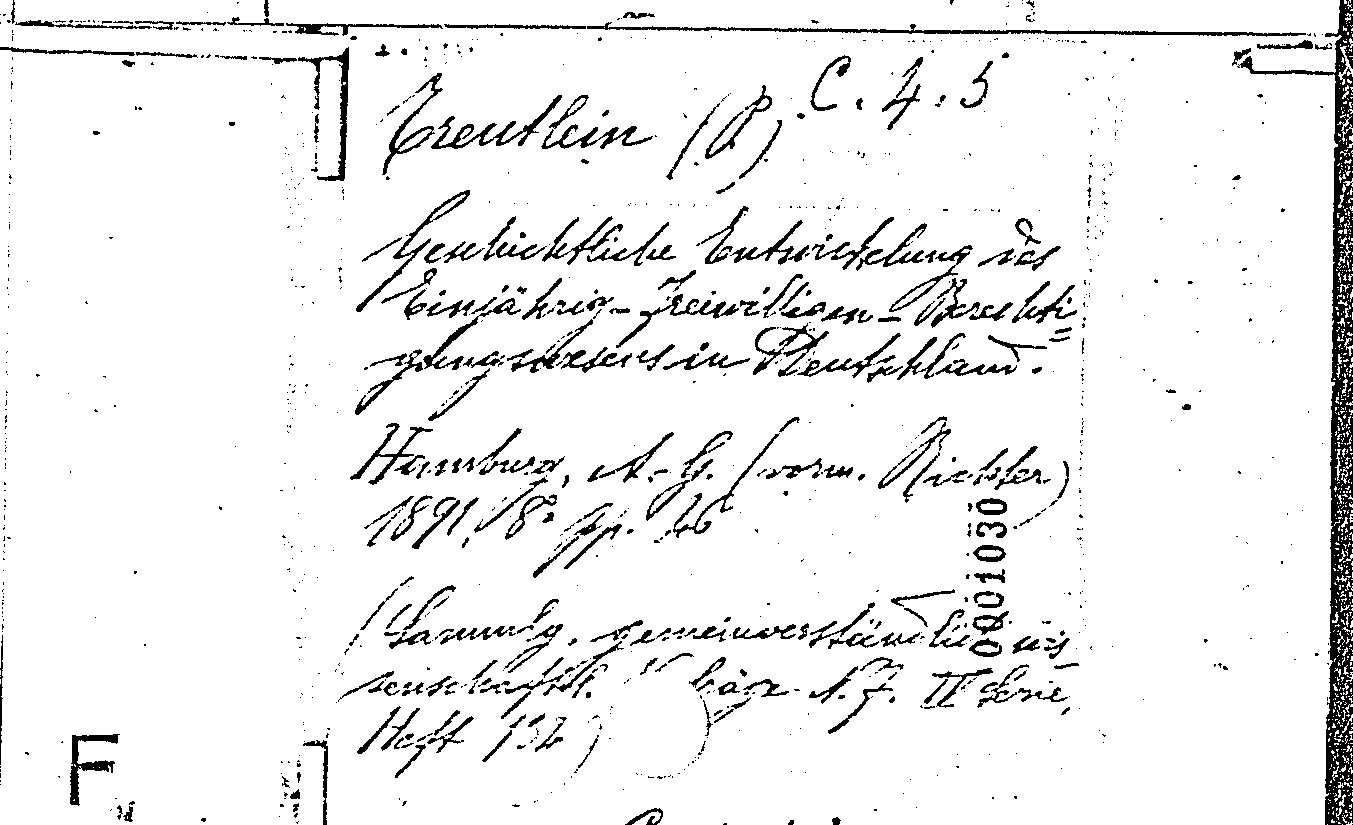 C. 4. 5
Treutlein (P.)
Geschichtliche Entwickelung des
Einjährig-Freiwilligen-Berechti=
gungswesens in Deutschland.
Hamburg, A.-G. (vorm. Richter)
1891, 8° pp.
(Sammlg. gemeinverständlich wis-
senschaftl. N. F. VI Serie,
Heft 132)
0001030
F